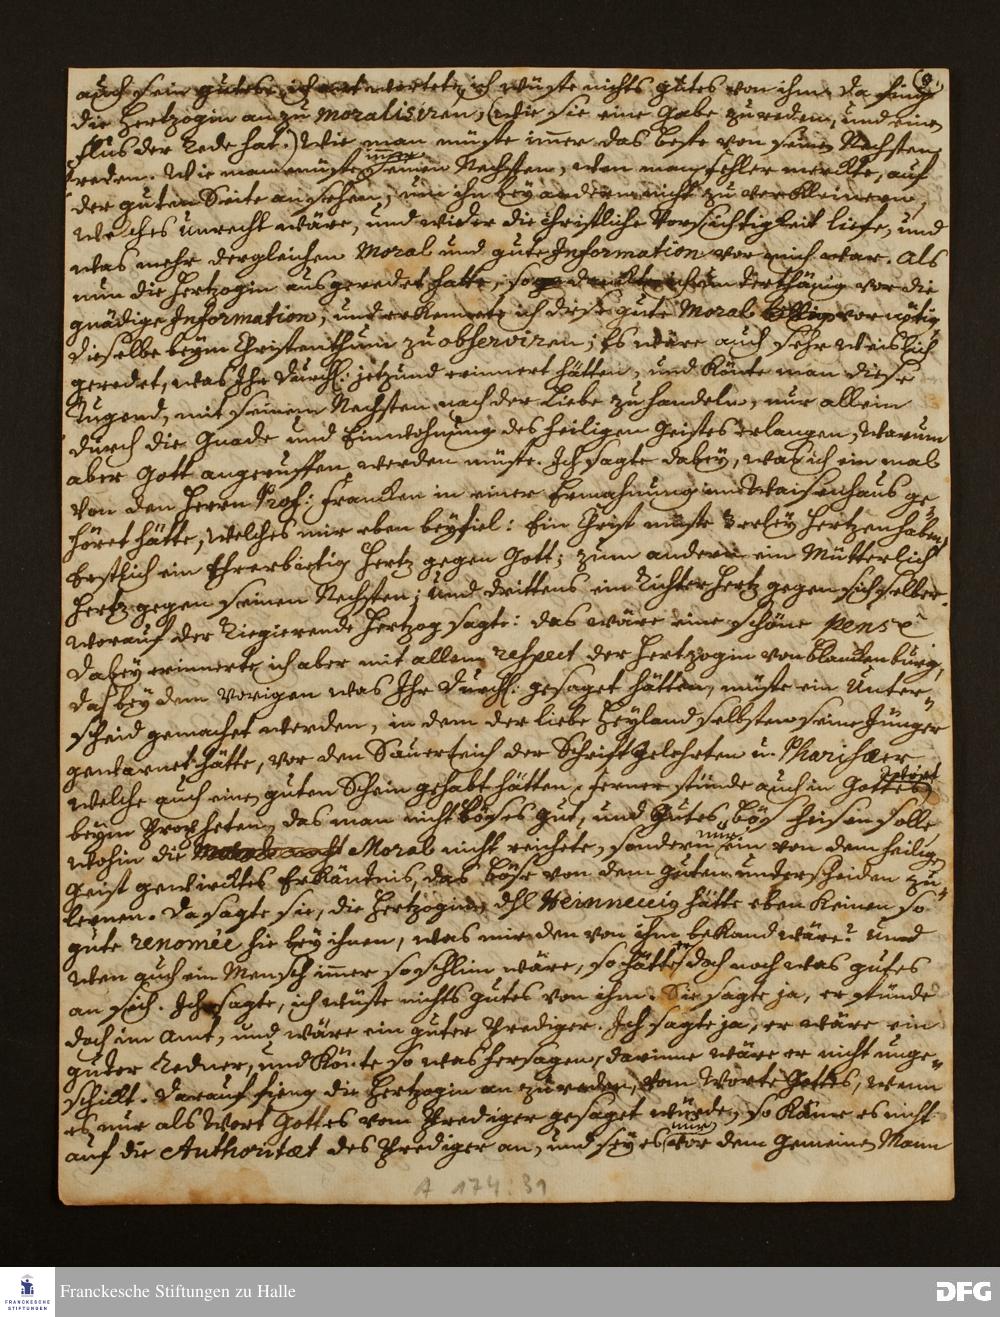 8.
auch sein gutes; ich antwortete, ich wüste nichts gutes von ihm. Da fing
die Hertzogin an zu moralisiren, (wie sie eine Gabe zu reden, und einen
Flus der Rede hat.) Wie man müste im̄er das beste von seinen Nechsten
reden. Wie man müste seinen Nechsten, wen man fehler merckte, auf
der guten Seite ansehen, um ihn bey andern nicht zu verkleinern,
welches unrecht wäre, und wieder die christliche Vorsichtigkeit liefe, und
was mehr dergleichen Moral und gute Information vor mich war. Als
nun die Hertzogin ausgeredet hatte, so unterthänig vor die
gnädige Information, und erkennete ich diese gute Moral vor nötig
dieselbe beym Christenthum zu observiren; Es wäre auch sehr weislich
geredet, was Ihr Durchl: jetzund erinnert hätten, und könte man diese
Tugend, mit seinem Nechsten nach der Liebe zu handeln, nur allein
durch die Gnade und Einwohnung des heiligen Geistes erlangen, warum
aber Gott angeruffen werden müste. Ich sagte dabey, was ich ein mal
von den Herrn Prof: Francken in einer Ermahnung im Waisenhaus ge-
höret hätte, welches mir eben beyfiel: Ein Christ müste 3erley Hertzen haben,
Erstlich ein Ehrerbietig Hertz gegen Gott; zum andern ein Mütterlich
Hertz gegen seinen Nechsten; und drittens ein Richter Hertz gegen sich selber.
worauf der Regierende Hertzog sagte: das wäre eine schöne pensé
Dabey erinnerte ich aber mit allem respect der Hertzogin von Blanckenburg,
daß bey dem vorigen was Ihr Durchl: gesaget hätten, müste ein Unter-
scheid gemachet werden, in dem der liebe Heyland selbsten seine Jünger
gewarnet hätte, vor den Sauerteich der Schrifftgelehrten u. Pharisaeer
welche auch einen guten Schein gehabt hätten, ferner stünde auch in Gottes wort
beym Propheten, das man nicht Böses gut, und Gutes bös heisen solle
wohin die Moral nicht reichete, sondern nur ein von dem heiligen
Geist gewircktes Erkäntnis, das Böse von dem Guten underscheiden zu
lernen. Da sagte sie, die Hertzogin, H. Heinneccig hätte eben keinen so
gute renomée hie bey ihnen, was mir den von ihm bekand wäre? und
wen auch ein Mensch im̄er so schlim wäre, so hätte er doch noch was gutes
an sich. Ich sagte, ich wüste nichts gutes von ihm. Sie sagte ja, er stünde
doch im Amt, und wäre ein guter Prediger. Ich sagte ja, er wäre ein
guter Redner, und könte so was hersagen, darinne wäre er nicht unge-
schickt. Darauf fieng die Hertzogin an zu reden, vom Worte Gottes, wenn
es nur als Wort Gottes vom Prediger gesaget würde, so käme es nicht
auf die Authoritæt des Prediger an, und sey es nur vor dem gemeinen Mann
A 174:31
FRANCKESCHE
STIFTUNGEN
Franckesche Stiftungen zu Halle
DFG